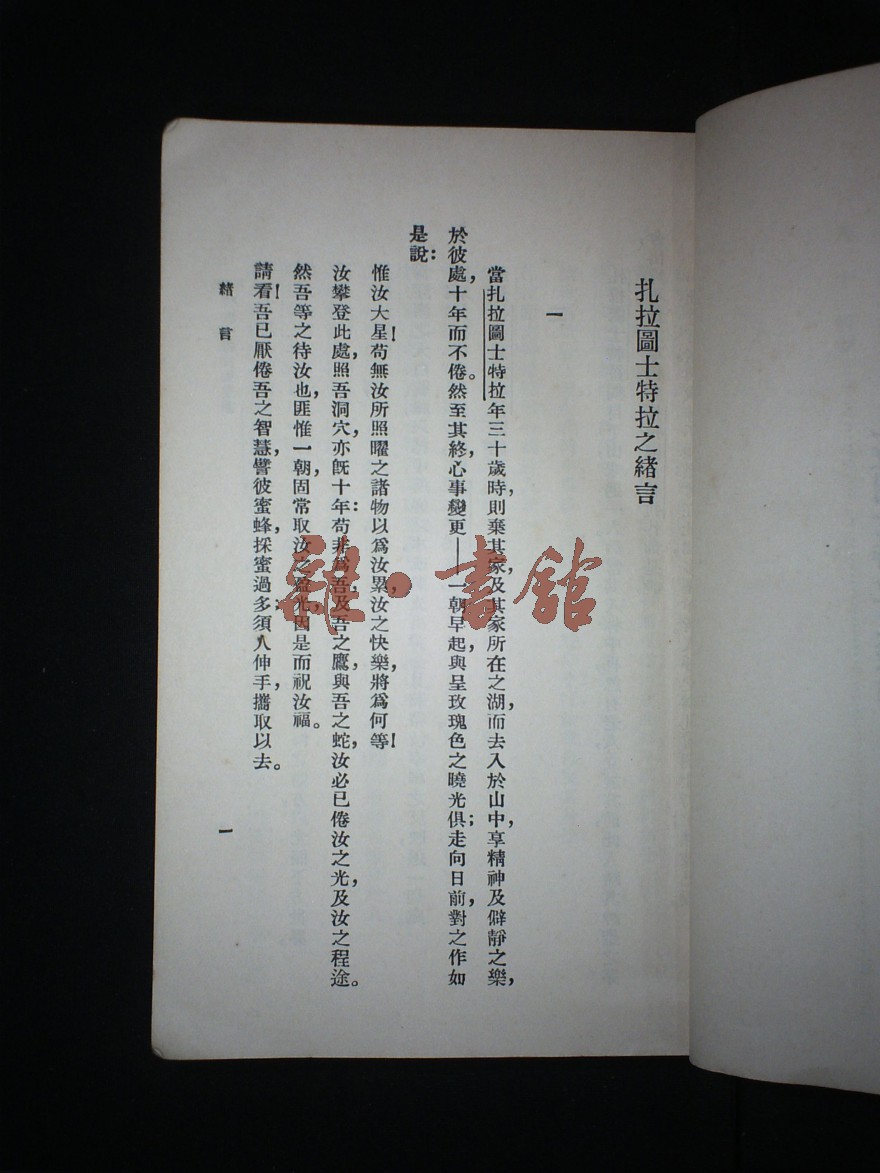 扎拉圖士特拉之緒言
一
當扎拉圖士特拉年三十歲時，則棄其家，及其家所在之湖，而去入於山中，享精神及僻靜之樂，
於彼處，十年而不倦。然至其終，心事變更——一朝早起，與呈玫瑰色之曉光俱；走向日前，對之作如
是說：
惟汝大星！苟無汝所照曜之諸物以爲汝累，汝之快樂，將爲何等！
汝攀登此處，照吾洞穴，亦旣十年：苟非爲吾，及吾之鷹，與吾之蛇，汝必已倦汝之光，及汝之程途。
然吾等之待汝也，匪惟一朝，固常取汝之盈光，因是而祝汝福。
請看！吾已厭倦吾之智慧，譬彼蜜蜂，採蜜過多；須人伸手，攜取以去。
緒言
一
雜·書館